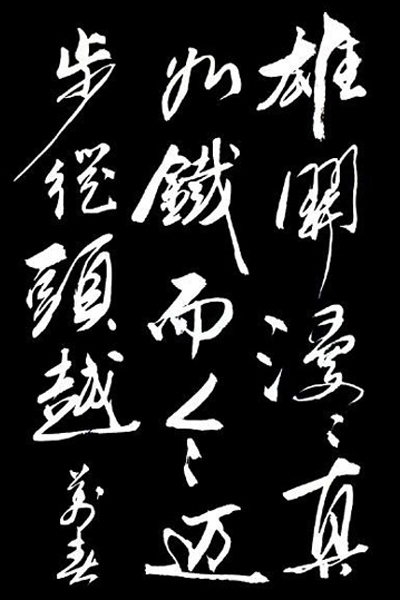 雄關漫〻真
如鐵而今迈
步從頭越
萬春